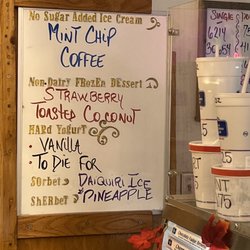 No Sugar Added Ice Cream
MINT CHIP
COFFEE
Non-Dairy Frozen Dessert
STRAWBERRY
TOASTED COCONUT
HARd Yogurt
• VANILLA
TO DIE FOR
SOrbet DAIQUIRI ICE
SHERbet PINEAPPLE
SINGLE